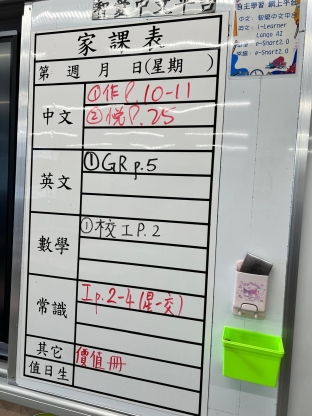 智愛中文平台
家課表
第 週 月 日(星期 )
中文
①作P.10-11
②悅P.25
英文
①GR p.5
數學
①校工P.2
常識
工p.2-4(星一交)
其它
價值冊
值日生
自主學習 網上平台
中文: 智愛中文平台
英文: i-Learner
Longo AI
e-Smart2.0
e-Smart2.0